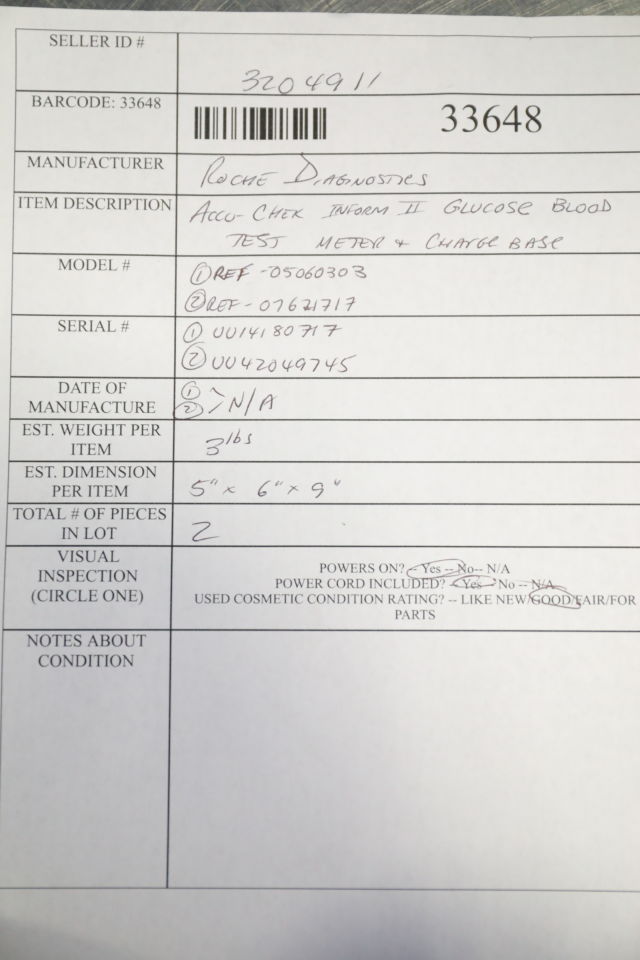 SELLER ID #
3204911
BARCODE: 33648
33648
MANUFACTURER
ROCHE DIAGNOSTICS
ITEM DESCRIPTION
ACCU-CHEK INFORM II GLUCOSE BLOOD
TEST METER & CHARGE BASE
MODEL #
① REF -05060303
② REF - 07671717
SERIAL #
① UU14180717
② UU42049745
DATE OF
MANUFACTURE
①
② > N/A
EST. WEIGHT PER
ITEM
3 lbs
EST. DIMENSION
PER ITEM
5" x 6" x 9"
TOTAL # OF PIECES
IN LOT
2
VISUAL
INSPECTION
(CIRCLE ONE)
POWERS ON? -- Yes -- No-- N/A
POWER CORD INCLUDED? -- Yes -- No -- N/A
USED COSMETIC CONDITION RATING? -- LIKE NEW/GOOD/FAIR/FOR
PARTS
NOTES ABOUT
CONDITION